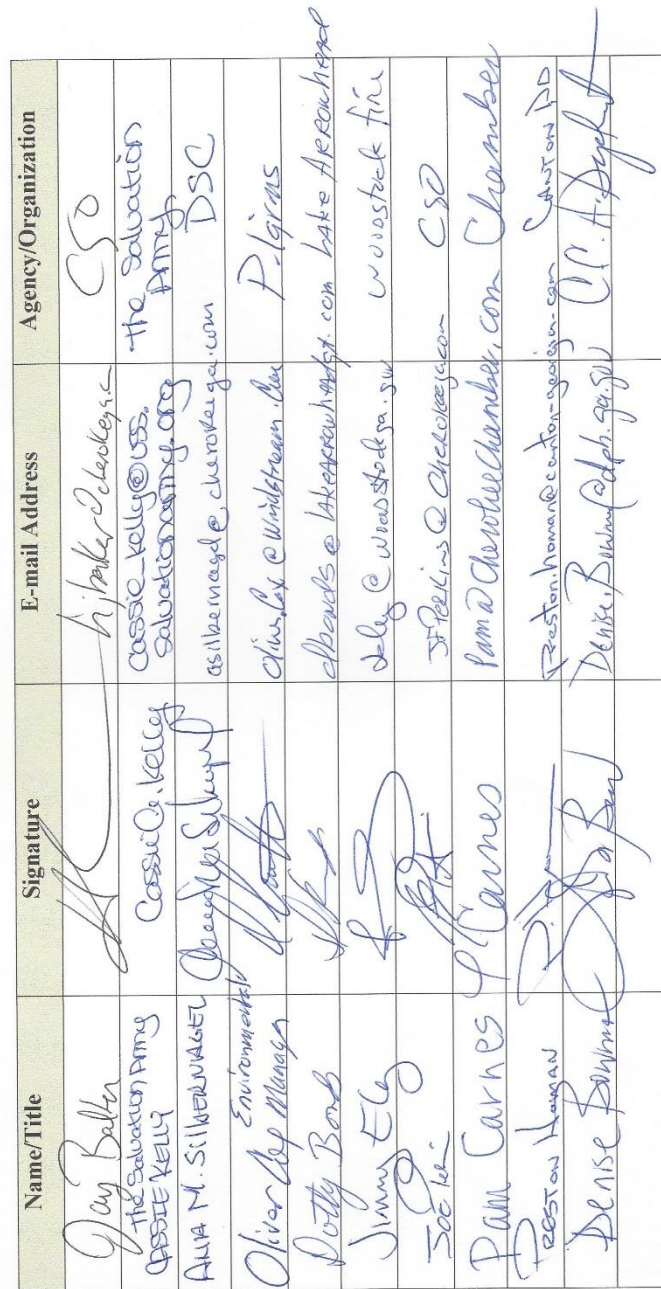 Name/Title Signature E-mail Address Agency/Organization
Jay Baker CSO
The Salvation Army
CASSIE KELLY Cassie A. Kelly cassie_kelly@uss.salvationarmy.org The Salvation Army
ANA M. SILBERNAGEL asilbernagel@cherokeega.com DSC
Environmental
Oliver Manager @windstream. Pilgrims
Dotty Bonds dbonds@lakearrowhead .com Lake Arrowhead
Jimmy Ely @woodstockga.gov Woodstock Fire
Joe JFPerkins@Cherokeega.com CSO
Pam Carnes P Carnes Pam@CherokeeChamber.com Chamber
PRESTON HOMAN Preston.homan@canton-georgia.com CANTON PD
Denise Bowman Denise.Bowman@dph.ga.gov